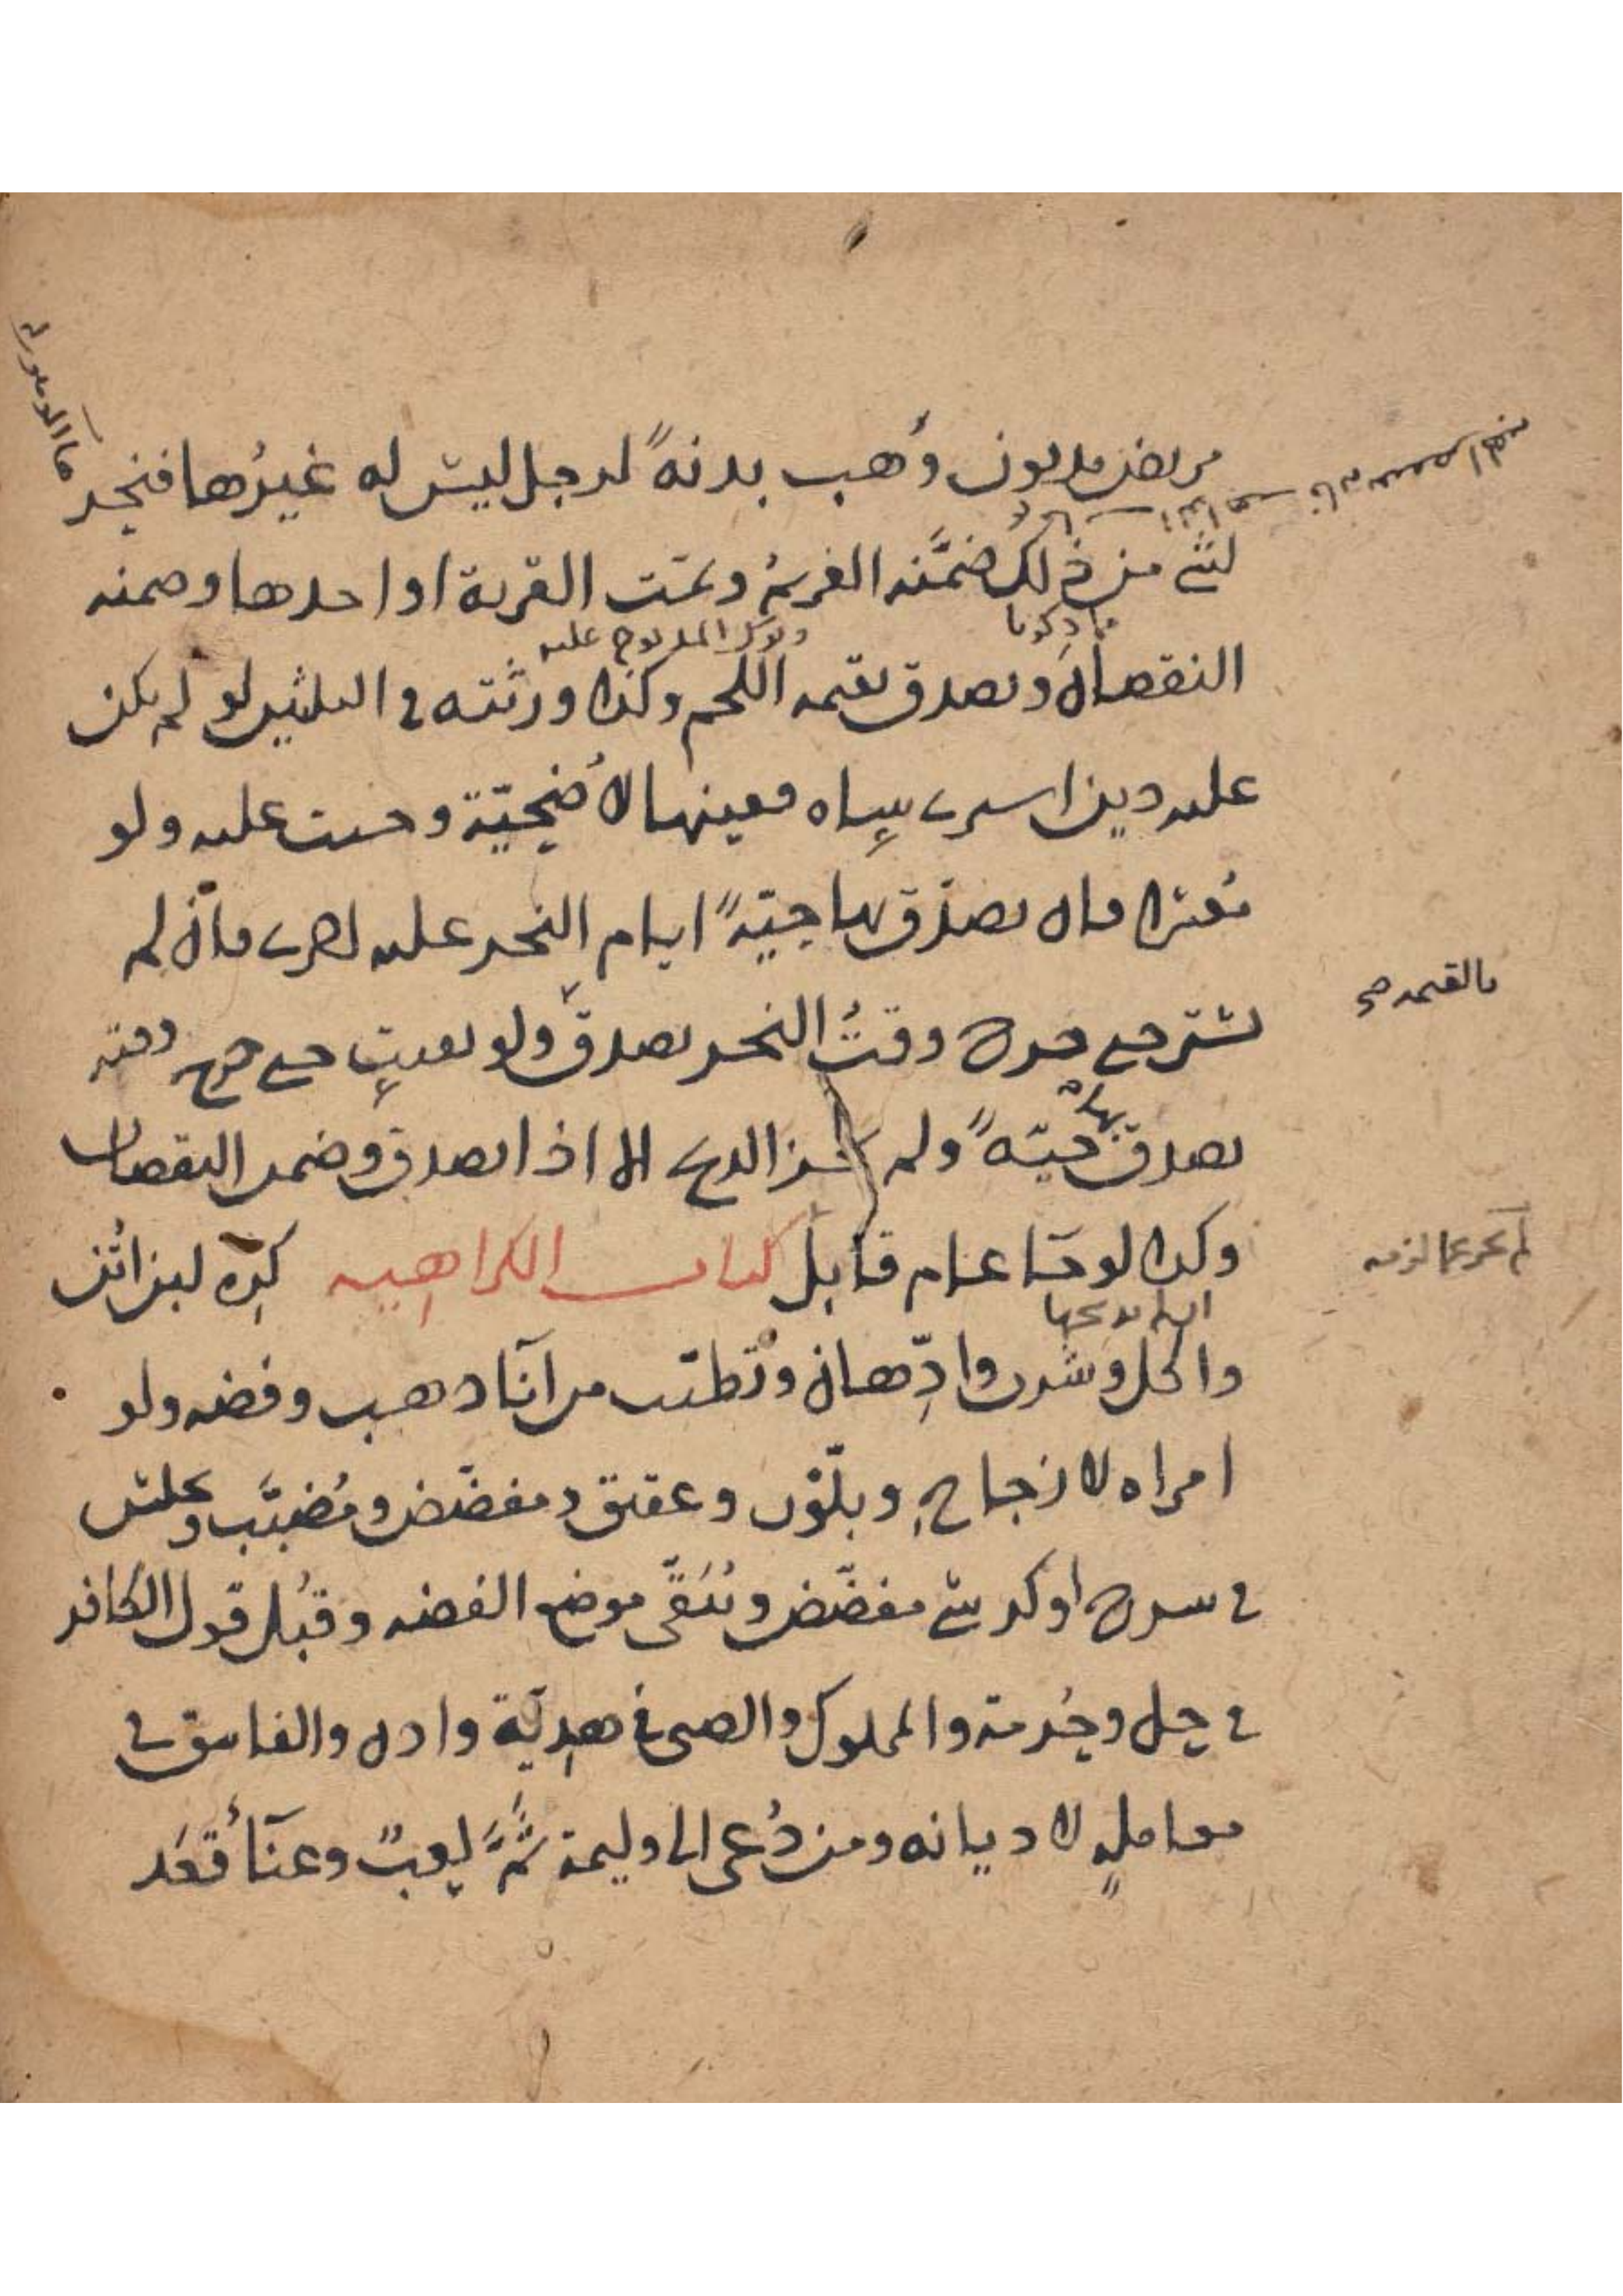 مريض مديون وهب بدنةً لرجل ليس له غيرُها فنحر
لشيء من ذلك ضمَّنه الغريمُ وتمّت القربة او احدها وضمنه
النقصان وتصدق بقيمه اللحم وكذا ورثته في الثلثين لو لم يكن
عليه دين اشترى شاه وعينها لأُضحيّة وجبت عليه ولو
فقيرا فان تصدّق بها حيّةً ايام النحر عليه اخرى فان لم
يشتر حتى خرج وقتُ النحر تصدق ولو بقيت حتى خرج وقته
تصدق بها حيّةً ولم الذبح الا اذا تصدق وضمن النقصان
وكذا لو جاء عام قابل كتاب الكراهيه كره لبن اتن
واكل وشرب وادّهان وتطيّب من اناء ذهب وفضه ولو
امراه لا زجاج وبلّور وعقيق ومفضّض ومُضبَّب وجلس
في سرج او كرسي مفضّض ويتقى موضع الفضه وقبل قول الكافر
في حِل وحُرمة والمملوك والصبي في هديّة واذن والفاسق في
معاملهٍ لا ديانه ومن دُعي الى وليمة ثَمَّ لعبٌ وغناء قعد
ما ذكرنا
بالقيمه صح